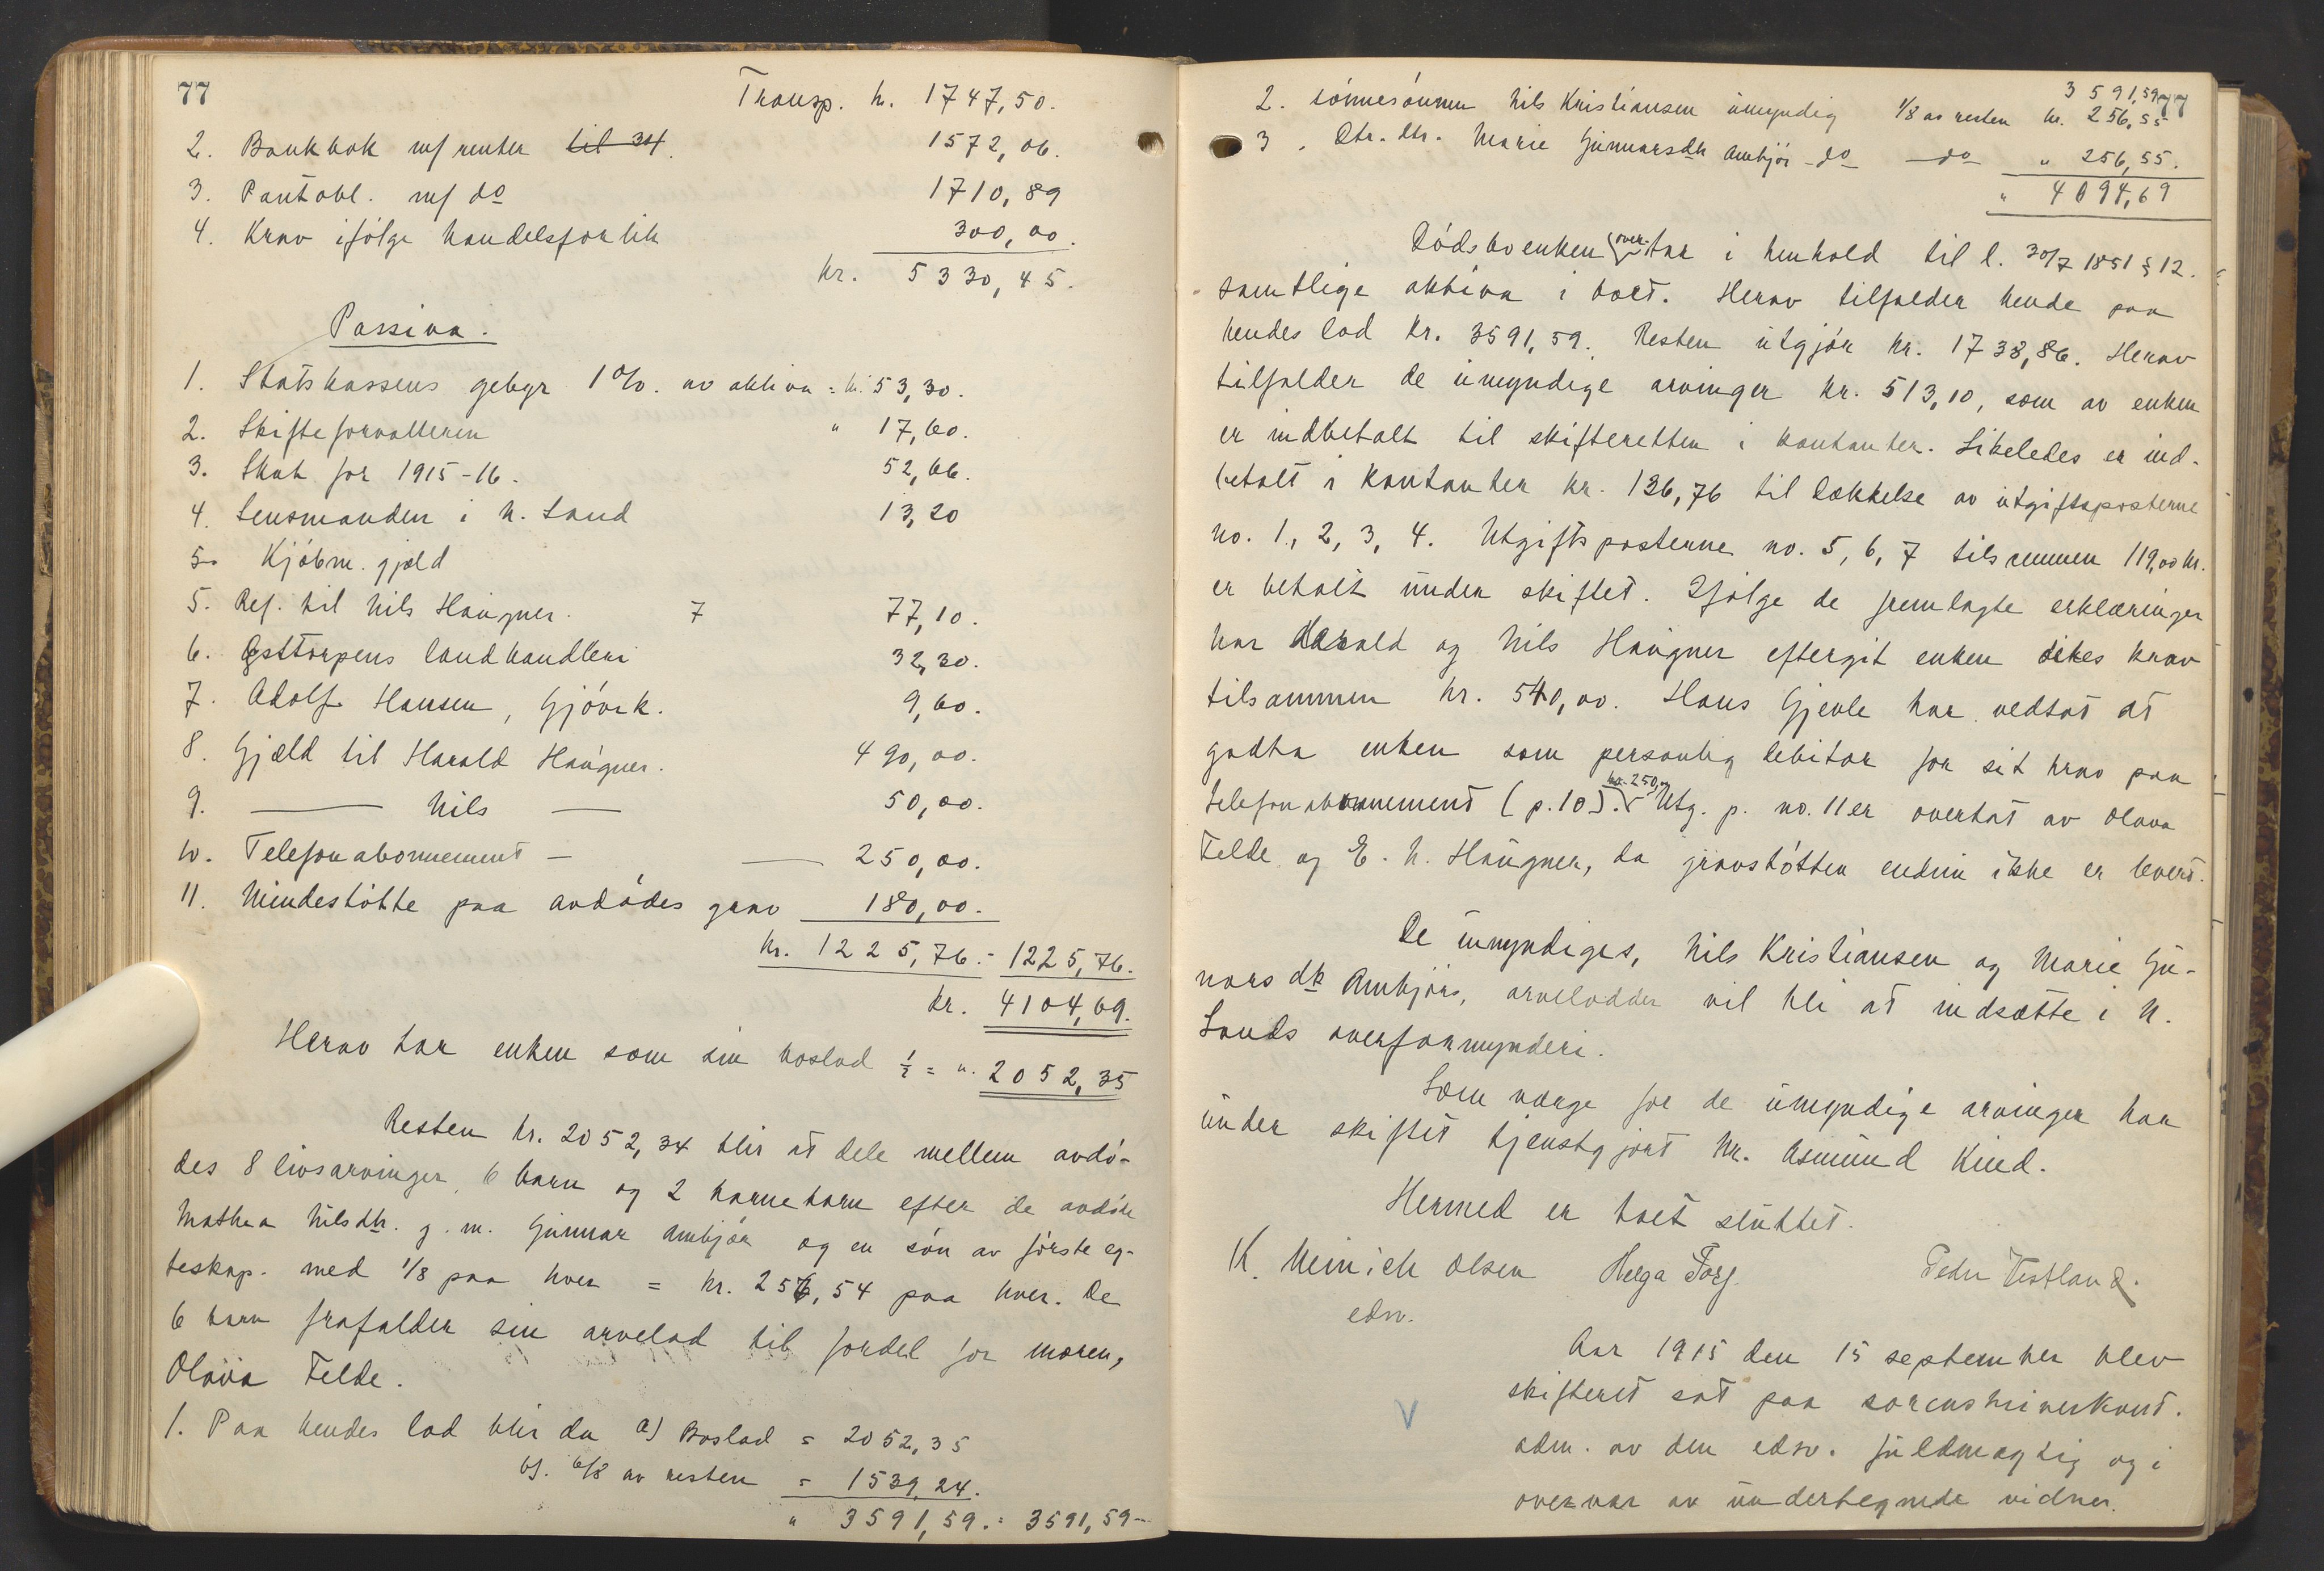 77
Transp. kr. 1747,50.
2. Bankbok m/ renter til 30/4. 1572,06.
3. Pantobl. m/ do 1710,89
4. Krav ifölge handelsforlik 300,00.
kr. 5330,45.
Passiva.
1. Statskassens gebyr 1%. av aktiva = kr. 53,30.
2. Skifteforvalteren " 17,60.
3. Skat for 1915-16. 52,66.
4. Lensmanden i N. Land 13,20
5. Kjöbm. gjæld
5. Ref. til Nils Haugner. 7 77,10.
6. Østtorpens landhandleri 32,30.
7. Adolf Hansen, Gjövik. 9,60.
8. Gjæld til Harald Haugner. 490,00.
9. — Nils — 50,00.
10. Telefonabonnement — — 250,00.
11. Mindestötte paa avdödes grav 180,00.
kr. 1225,76.- 1225,76.
kr. 4104,69.
Herav har enken som sin boslod ½ = ". 2052,35
Resten kr. 2052,34 blir at dele mellem avdö-
des 8 livsarvinger, 6 barn og 2 barnebarn efter de avdöde
Mathea Nilsdtr. g. m. Gunnar Ambjör og en sön av förste eg-
teskap. med 1/8 paa hver = kr. 256,54 paa hver. De
6 barn frafalder sin arvelod til fordel for moren,
Olava Felde.
1. Paa hendes lod blir da a) Boslod = 2052,35
b). 6/8 av resten = 1539,24.
" 3591,59. = 3591,59-
3591,59
77
2. sönnesönnen Nils Kristiansen umyndig 1/8 av resten kr. 256,55
3. Dtr. dtr. Marie Gunnarsdtr Ambjör -do- -do- " 256,55.
" 4094,69
Dödsboenken over-tar i henhold til l. 30/7 1851 § 12.
samtlige aktiva i boet. Herav tilfalder hende paa
hendes lod kr. 3591,59. Resten utgjör kr. 1738,86. Herav
tilfalder de umyndige arvinger kr. 513,10, som av enken
er indbetalt til skifteretten i kontanter. Likeledes er ind-
betalt i kontanter kr. 136,76 til dækkelse av utgiftsposterne
no. 1, 2, 3, 4. Utgiftsposterne no. 5, 6, 7 tilsammen 119,00 kr.
er betalt under skiftet. Ifölge de fremlagte erklæringer
har Harald og Nils Haugner eftergit enken sikes krav
tilsammen kr. 540,00. Hans Gjevle har vedtat at
godta enken som personlig debitor for sit krav paa
kr. 250,00
telefonabonnement (p. 10). Utg. p. no. 11 er overtat av Olava
Felde og E. N. Haugner, da gravstötten endnu ikke er levert.
De umyndiges, Nils Kristiansen og Marie Gu-
nars dtr Ambjörs, arvelodder vil bli at indsætte i N.
Lands overformynderi.
Som værge for de umyndige arvinger har
under skiftet tjenstgjort hr. Asmund Kind.
Hermed er boet sluttet.
K. Meinich Olsen Helga Torp. Peder Vestland.
edsv.
Aar 1915 den 15 september blev
skifteret sat paa sorenskriverkont.
adm. av den edsv. fuldmægtig og i
overvær av undertegnede vidner.